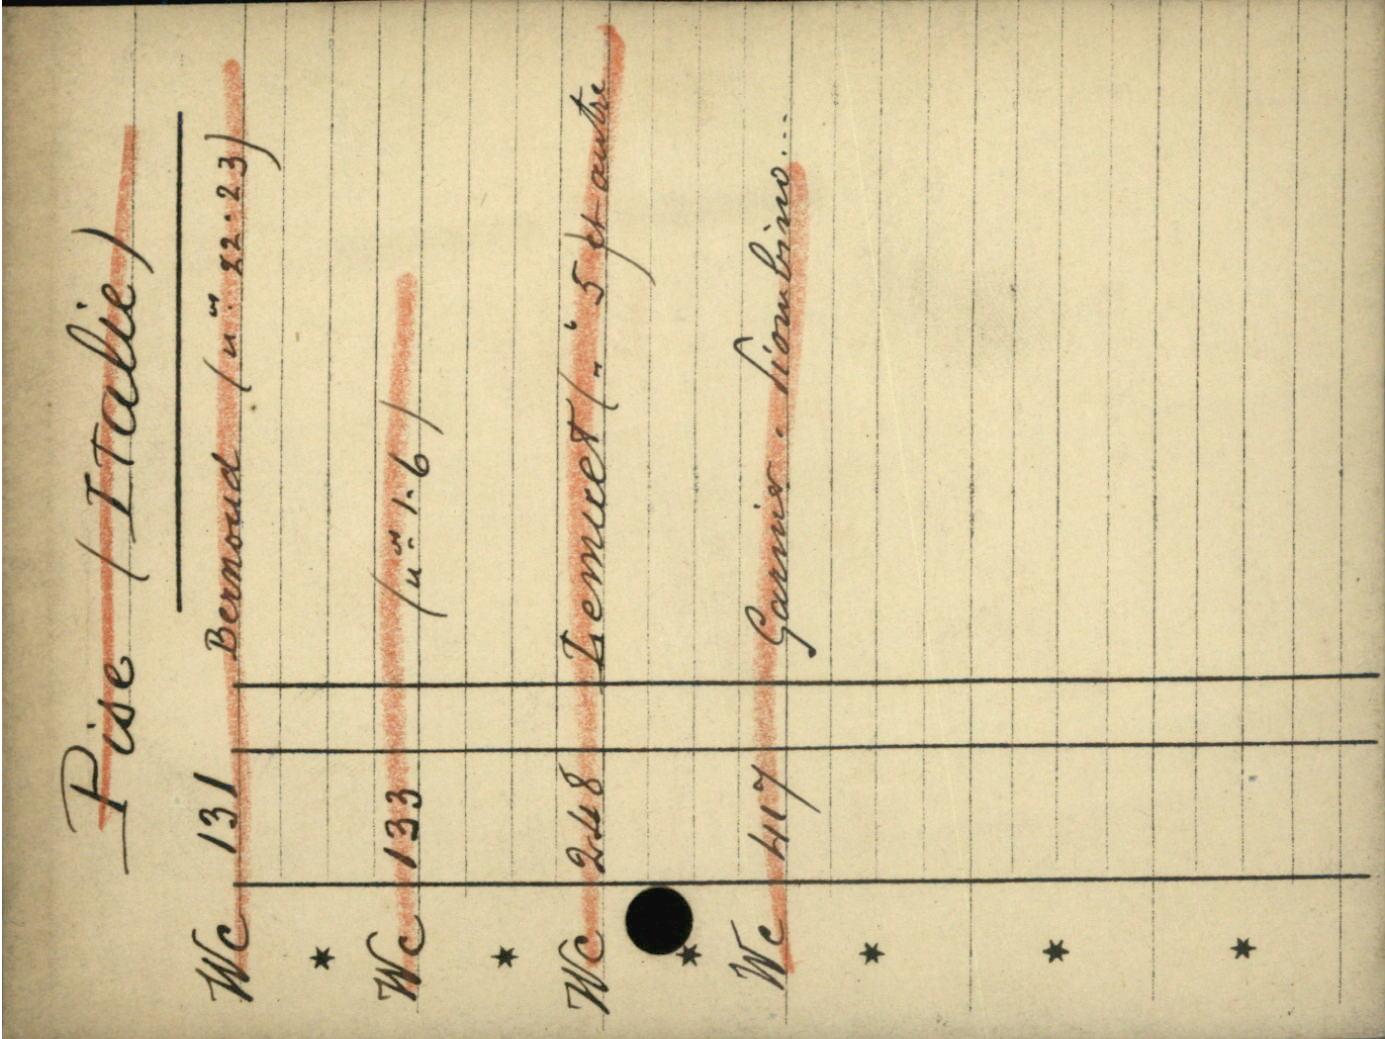 Pise (Italie)
Wc 131 Bernoud (nos. 22.23)
Wc 133 (nos. 1.6)
Wc 248 Lemuet (" 5) et autre
Wc 417 Garnier. Piombino...